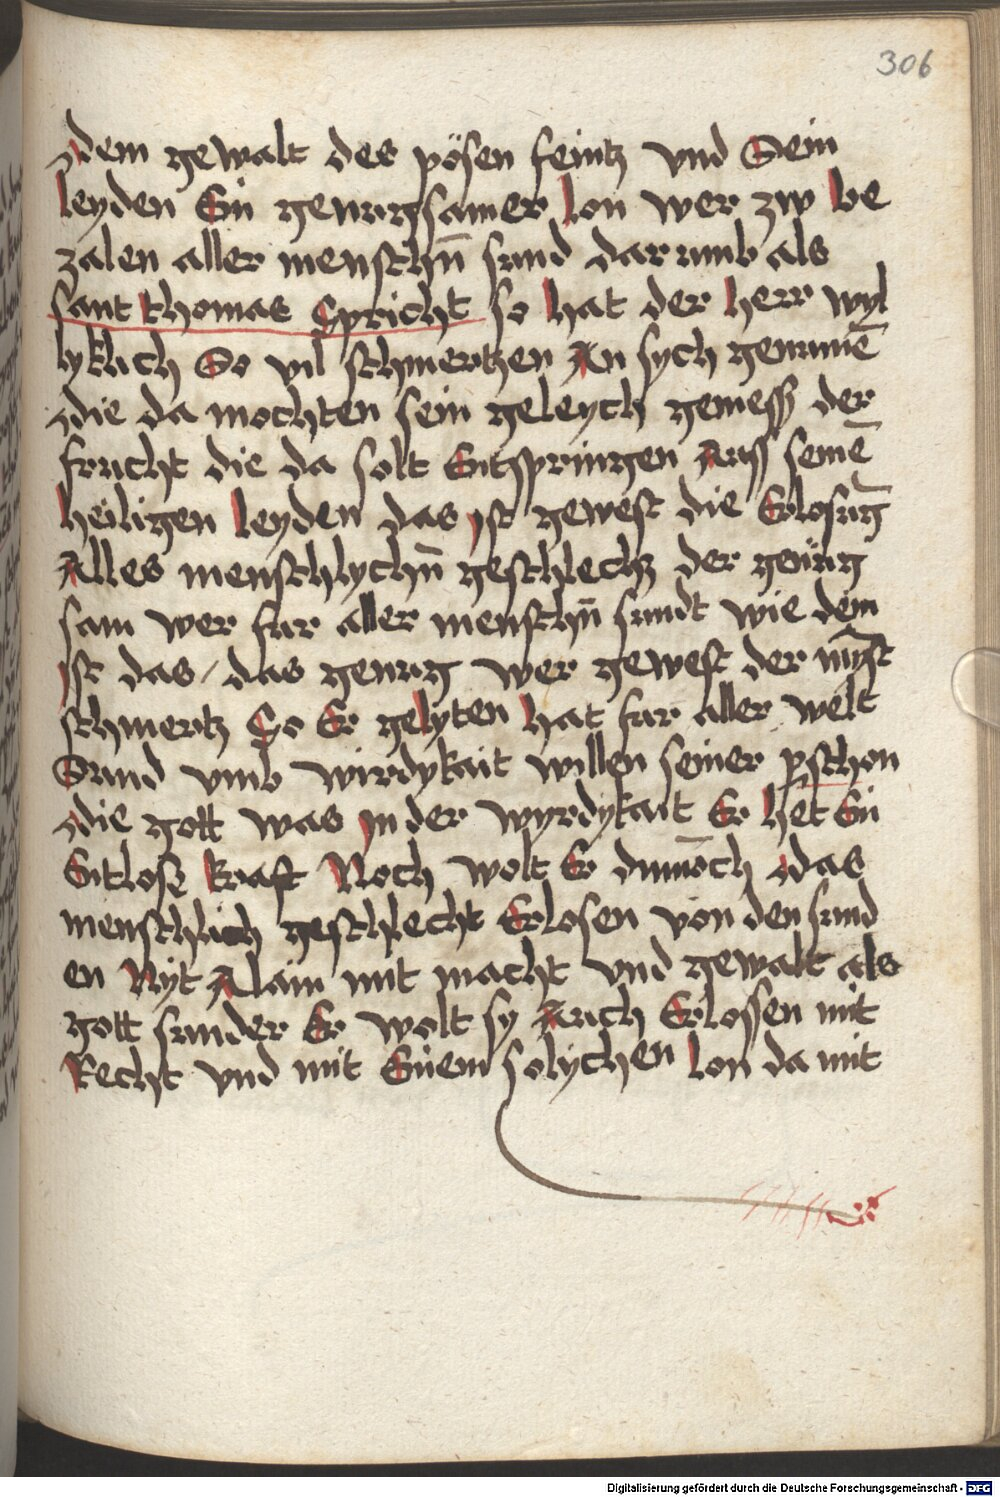 306
dem gewalt des pösen feintz vnd Sein
leyden Ein genugsamer lon wer zw be
zalen aller menschn̄ sund dar umb als
sant thomas Spricht so hat der herr wyl
lyklich So vil schmertzen An sych genumē
die da mochten sein geleych gemess der
frucht die da solt Entspringen Auss seinē
heiligen leyden das yst gewest die Erlosūg
Alles menschlychn̄ geschlechz der genug
sam wer fur aller menschn̄ sundt wie dem
yst das / das genug wer gewest der mȳst
schmertz So Er gelyten hat fur aller welt
Sund vmb wirdykait willen seiner pschon
die gott was yn der wyrdykait Er het Ein
Entlose kraft Noch wolt Er dunnoch das
menschlich geschlecht Erlosen von den sund
en Nyt Alain mit macht vnd gewalt als
gott sunder Er wolt sy Auch Erlossen mit
Recht vnd mit Einem solychen lon da mit
Digitalisierung gefördert durch die Deutsche Forschungsgemeinschaft - DFG